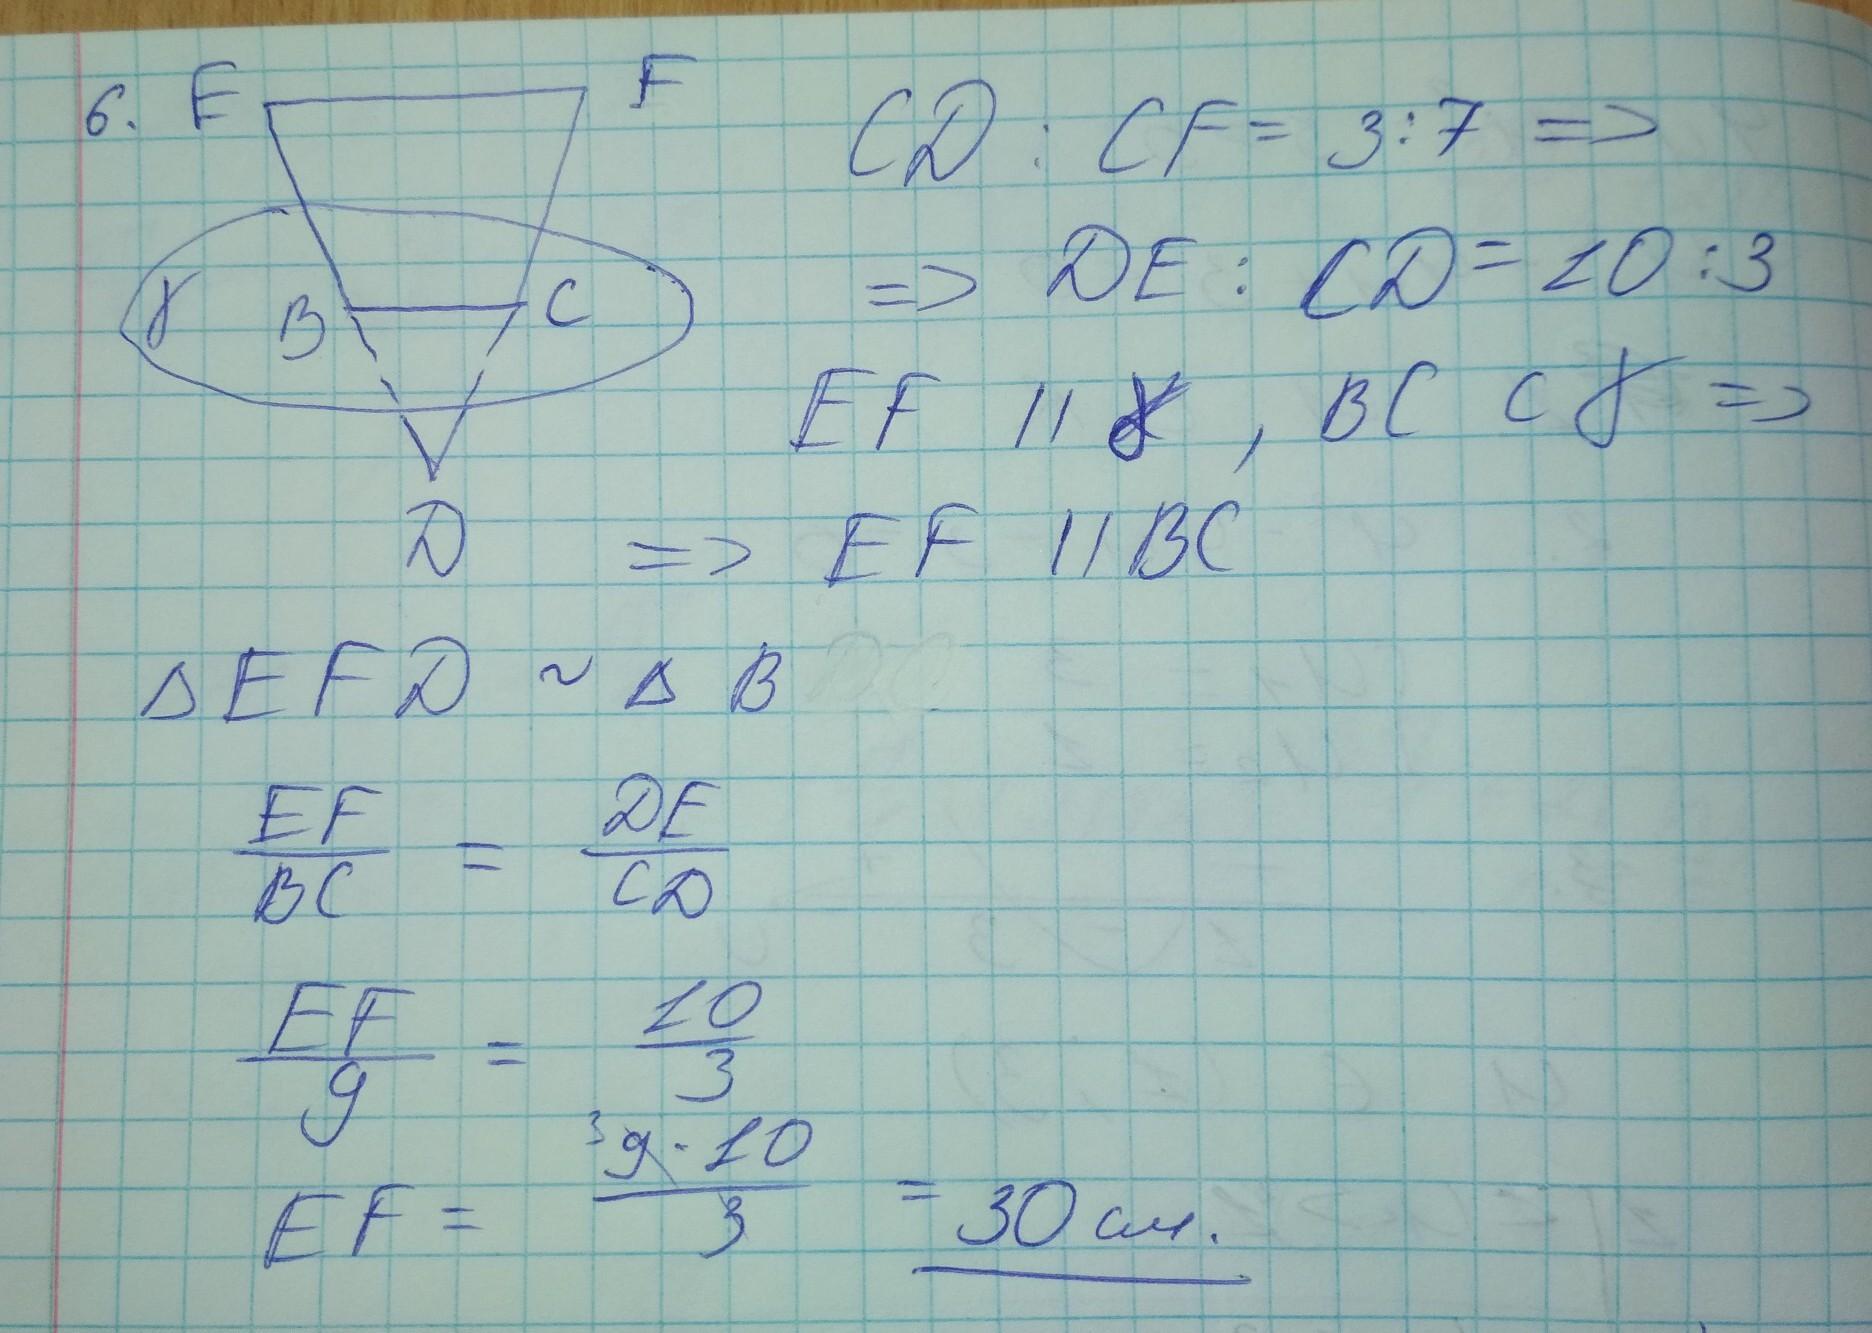 6. E F
CD : CF = 3:7 =>
=> DE : CD = 10:3
γ B C
EF || γ , BC ⊂ γ =>
D => EF || BC
Δ EFD ~ Δ B
EF/BC = DE/CD
EF/9 = 10/3
EF = ³9·10/3 = 30 см.